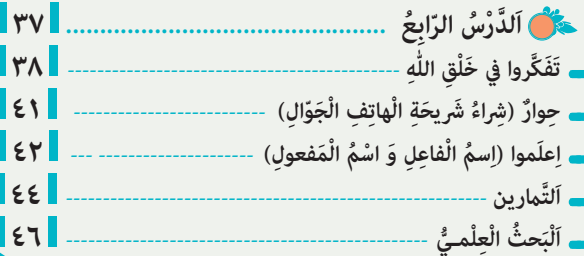 اَلدَّرْسُ الرّابِعُ ................................................ ٣٧
تَفَكَّروا في خَلْقِ اللّٰهِ ------------------------------------------------ ٣٨
حِوارٌ (شِراءُ شَريحَةِ الْهاتِفِ الْجَوّالِ) ---------------------------- ٤١
اِعلَموا (اِسمُ الْفاعِلِ وَ اسْمُ الْمَفعولِ) ---------------------- --- ٤٢
اَلتَّمارين ------------------------------------------------------------ ٤٤
اَلْبَحثُ الْعِلْميُّ ---------------------------------------------------- ٤٦